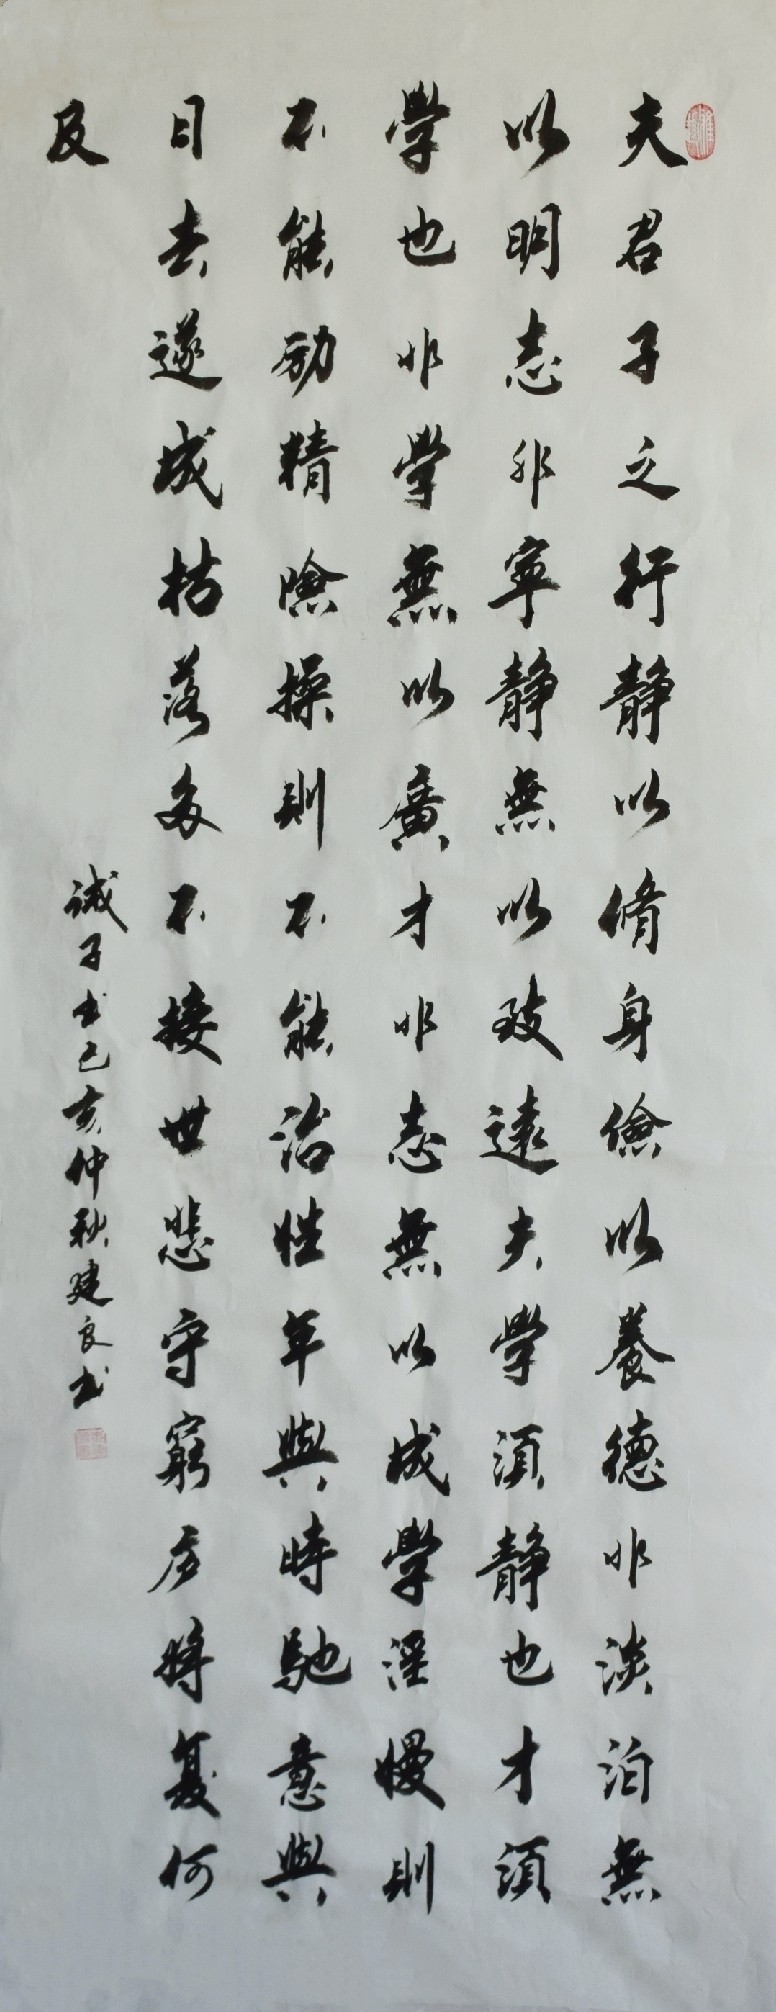 夫君子之行静以脩身儉以養德非淡泊無
以明志非寧静無以致遠夫學須静也才須
學也非學無以廣才非志無以成學淫慢則
不能励精險操則不能治性年與時馳意與
日去遂成枯落多不接世悲守窮廬將復何
及
誡子书己亥仲秋建良书